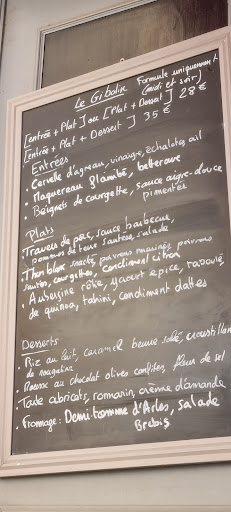 Le Gibolin
Formule uniquement
(midi et soir)
[entrée + Plat] ou [Plat + Dessert] 28 €
[entrée + Plat + Dessert] 35 €
Entrées
. Cervelle d'agneau, vinaigre, échalotes, ail
. Maquereau flambé, betterave
. Beignets de courgette, sauce aigre-douce
pimentée
Plats
. Travers de porc, sauce barbecue,
pommes de terre sautées, salade
. Thon blanc snacké, poivrons marinés, poivrons
sautés, courgettes, condiment citron
. Aubergine rôtie, yaourt épicé, taboulé
de quinoa, tahini, condiment dattes
Desserts
. Riz au lait, caramel beurre salé, croustillant
de nougatine
. Mousse au chocolat olives confites, fleur de sel
. Tarte abricots, romarin, crème d'amande
. Fromage: Demi-tomme d'Arles, salade
Brebis